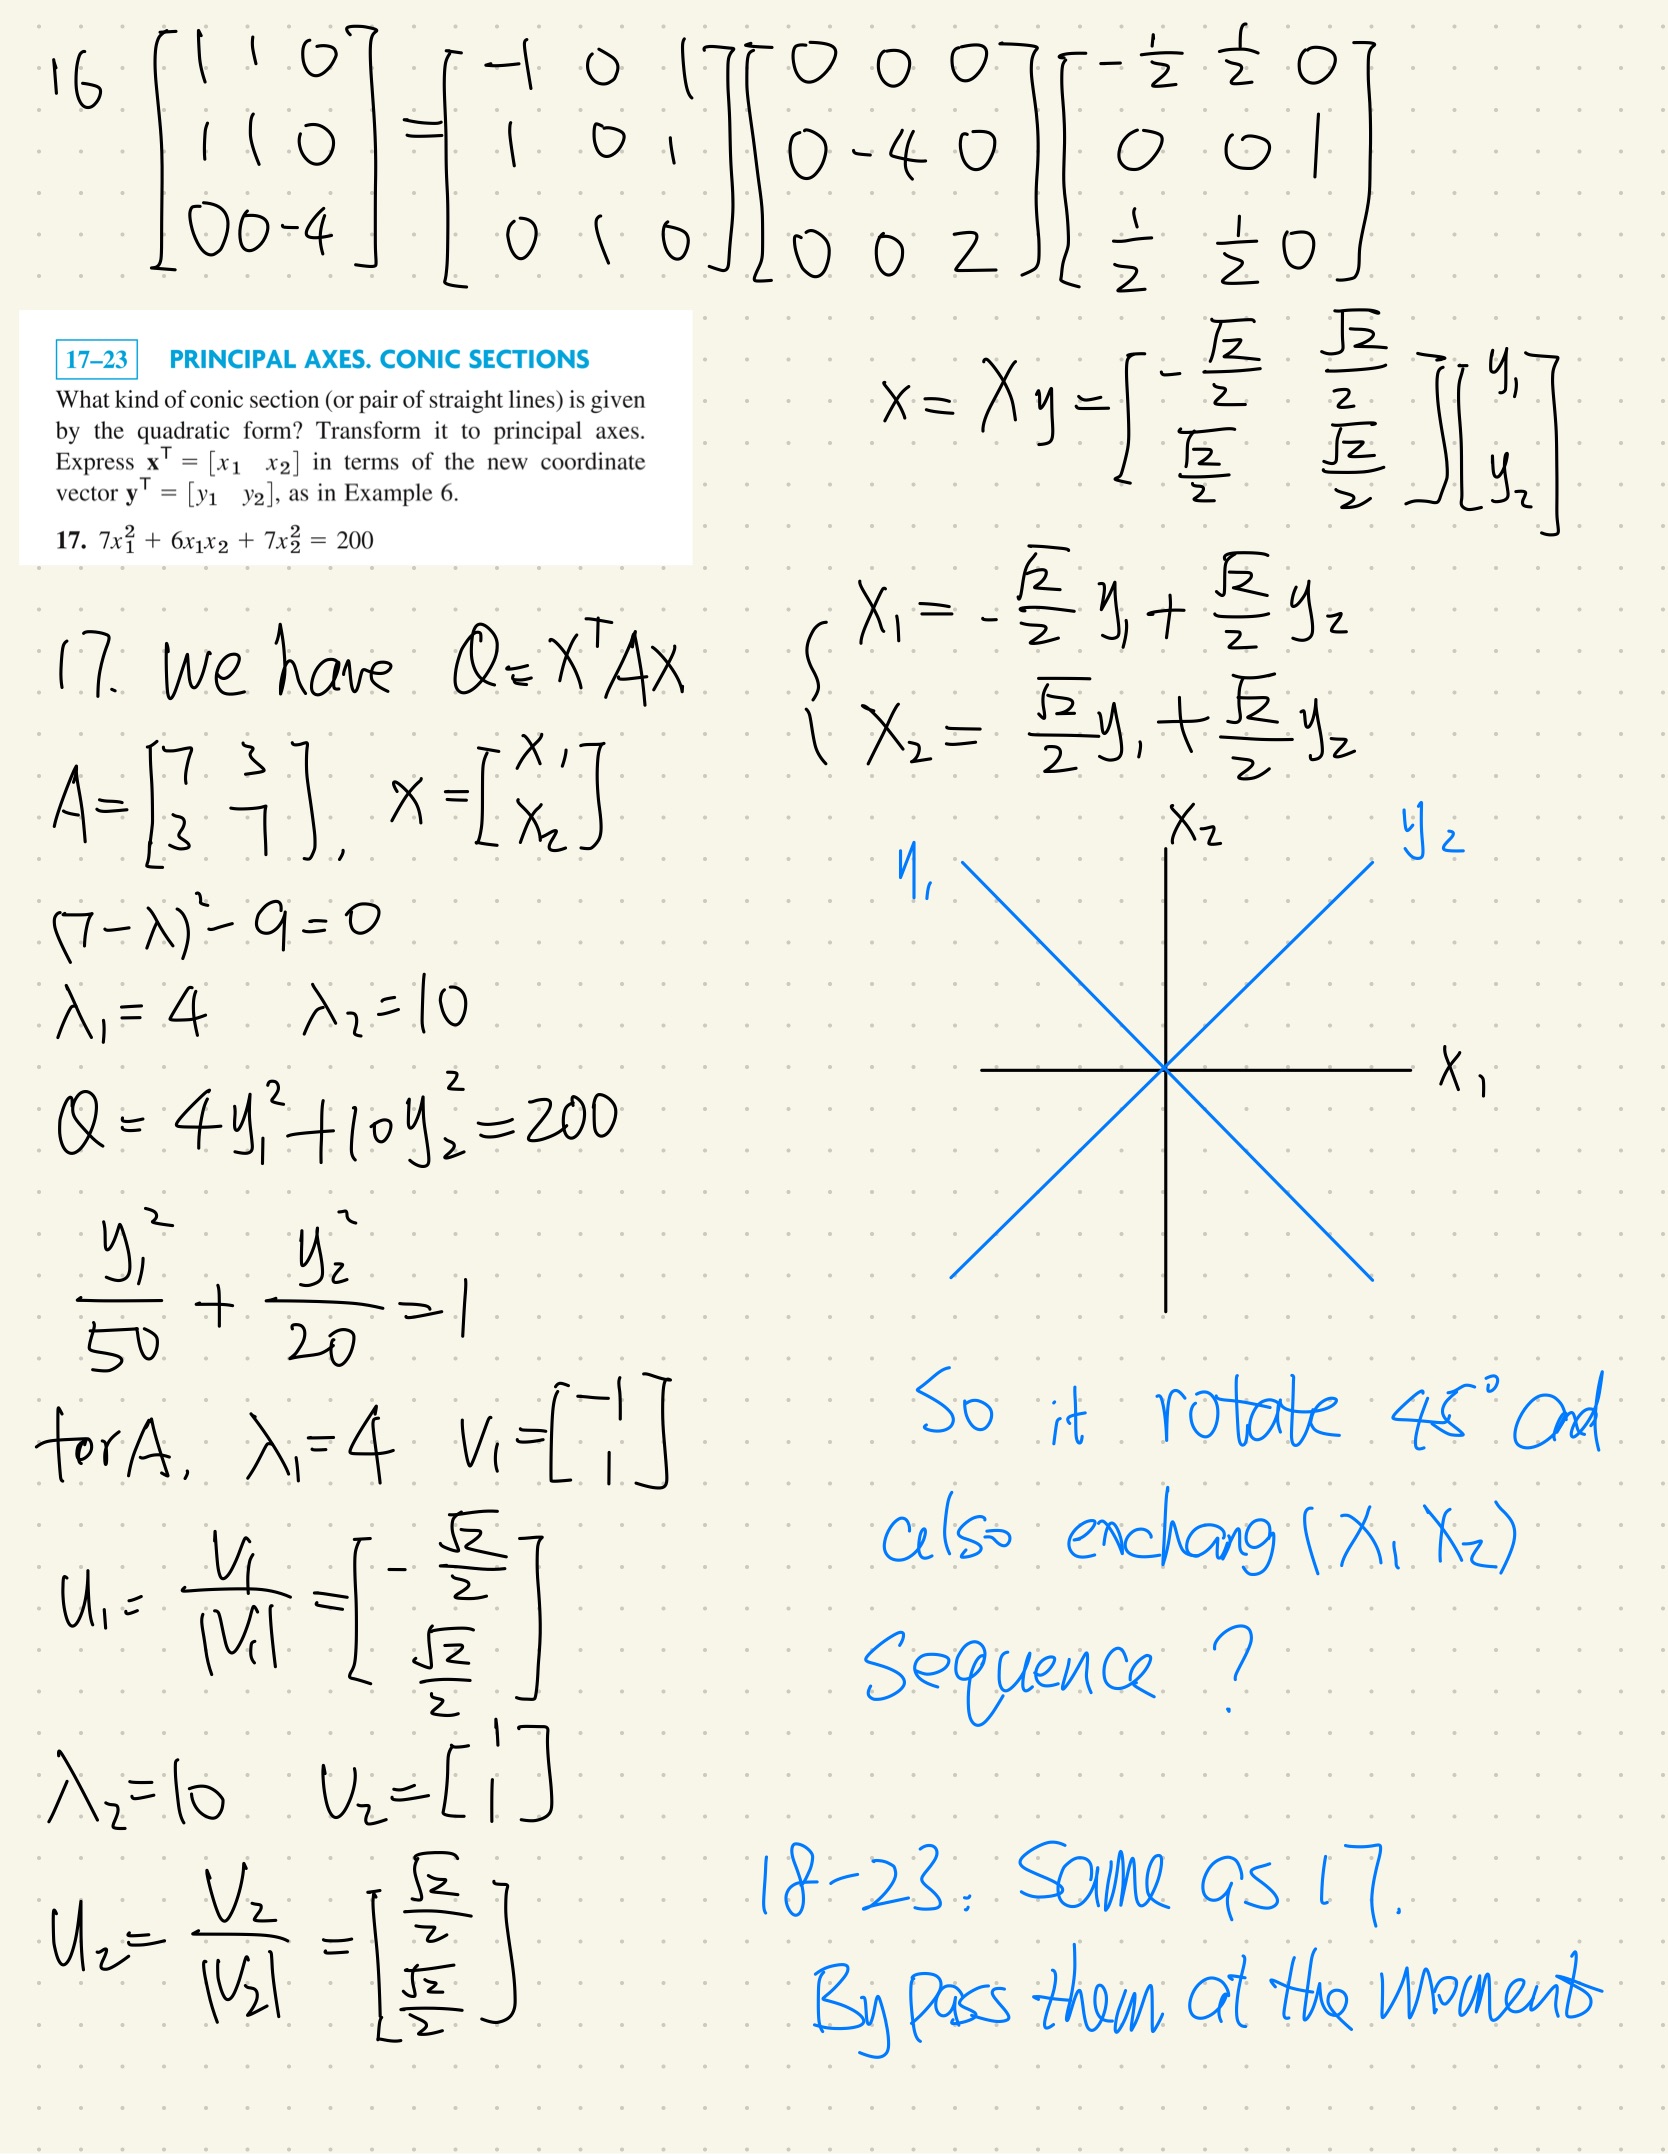 16 [1 1 0; 1 1 0; 0 0 -4] = [-1 0 1; 1 0 1; 0 1 0] [0 0 0; 0 -4 0; 0 0 2] [-1/2 1/2 0; 0 0 1; 1/2 1/2 0]
17–23 PRINCIPAL AXES. CONIC SECTIONS
What kind of conic section (or pair of straight lines) is given
by the quadratic form? Transform it to principal axes.
Express x^T = [x₁ x₂] in terms of the new coordinate
vector y^T = [y₁ y₂], as in Example 6.
17. 7x₁² + 6x₁x₂ + 7x₂² = 200
17. we have Q = x^T A x
A = [7 3; 3 7], x = [x₁; x₂]
(7-λ)² - 9 = 0
λ₁ = 4 λ₂ = 10
Q = 4y₁² + 10y₂² = 200
y₁²/50 + y₂²/20 = 1
for A, λ₁ = 4 v₁ = [-1; 1]
u₁ = v₁/|v₁| = [-√2/2; √2/2]
λ₂ = 10 v₂ = [1; 1]
u₂ = v₂/|v₂| = [√2/2; √2/2]
x = Xy = [-√2/2 √2/2; √2/2 √2/2] [y₁; y₂]
{ x₁ = -√2/2 y₁ + √2/2 y₂
x₂ = √2/2 y₁ + √2/2 y₂
y₁
x₂
y₂
x₁
So it rotate 45° and
also exchang (x₁ x₂)
sequence ?
18-23: Same as 17.
By pass them at the moment